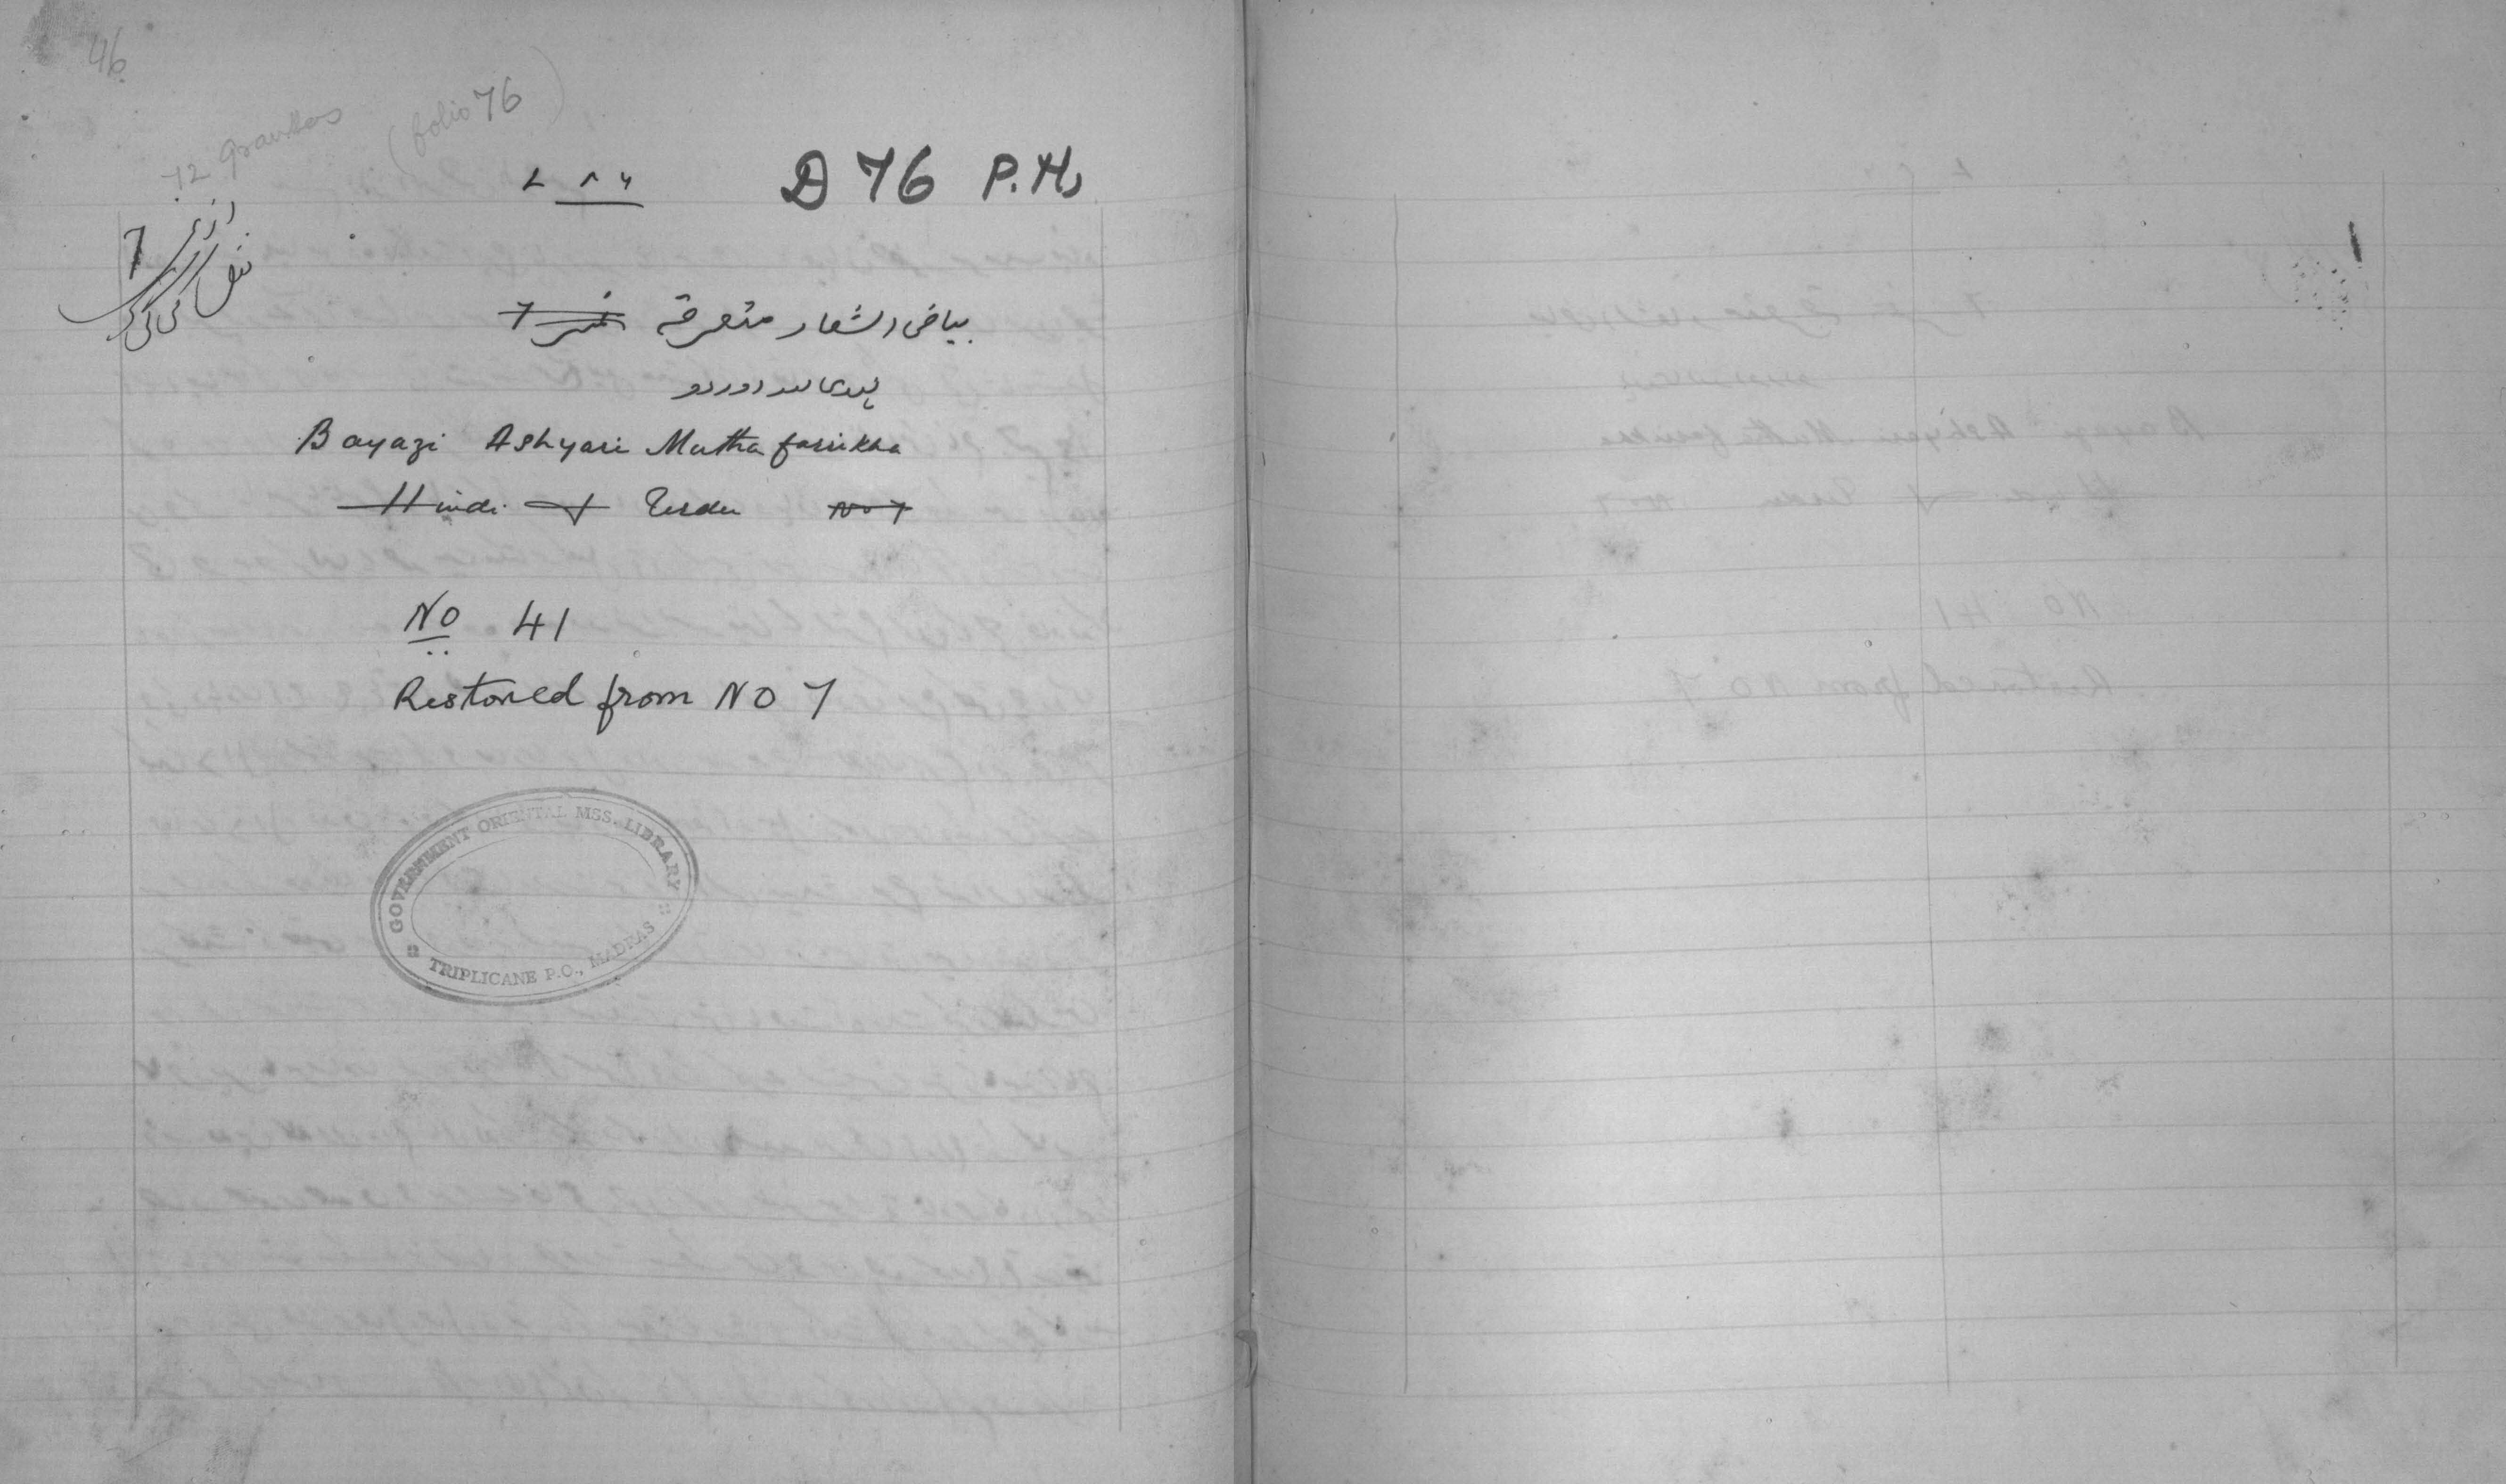 46
12 Granthas (folio 76)
۷۸۶ D 76 P.Hs
7
بیاض اشعار متفرقہ نمبر 7
ہندی اردو
Bayazi Ashyari Muthafarrikha
Hindi & Urdu No 7
No 41
Restored from NO 7
GOVERNMENT ORIENTAL MSS. LIBRARY
TRIPLICANE P.O., MADRAS
1